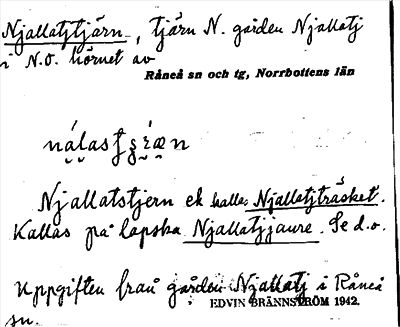 Njallatjtjärn, tjärn N. gården Njallatj
i N.O. hörnet av
Råneå sn och tg, Norrbottens län
Njallatstjern el kallas Njallatjträsket.
Kallas på lapska Njallatjjaure. Se d.o.
Uppgiften från gården Njallatj i Råneå
EDVIN BRÄNNSTRÖM 1942.
sn.